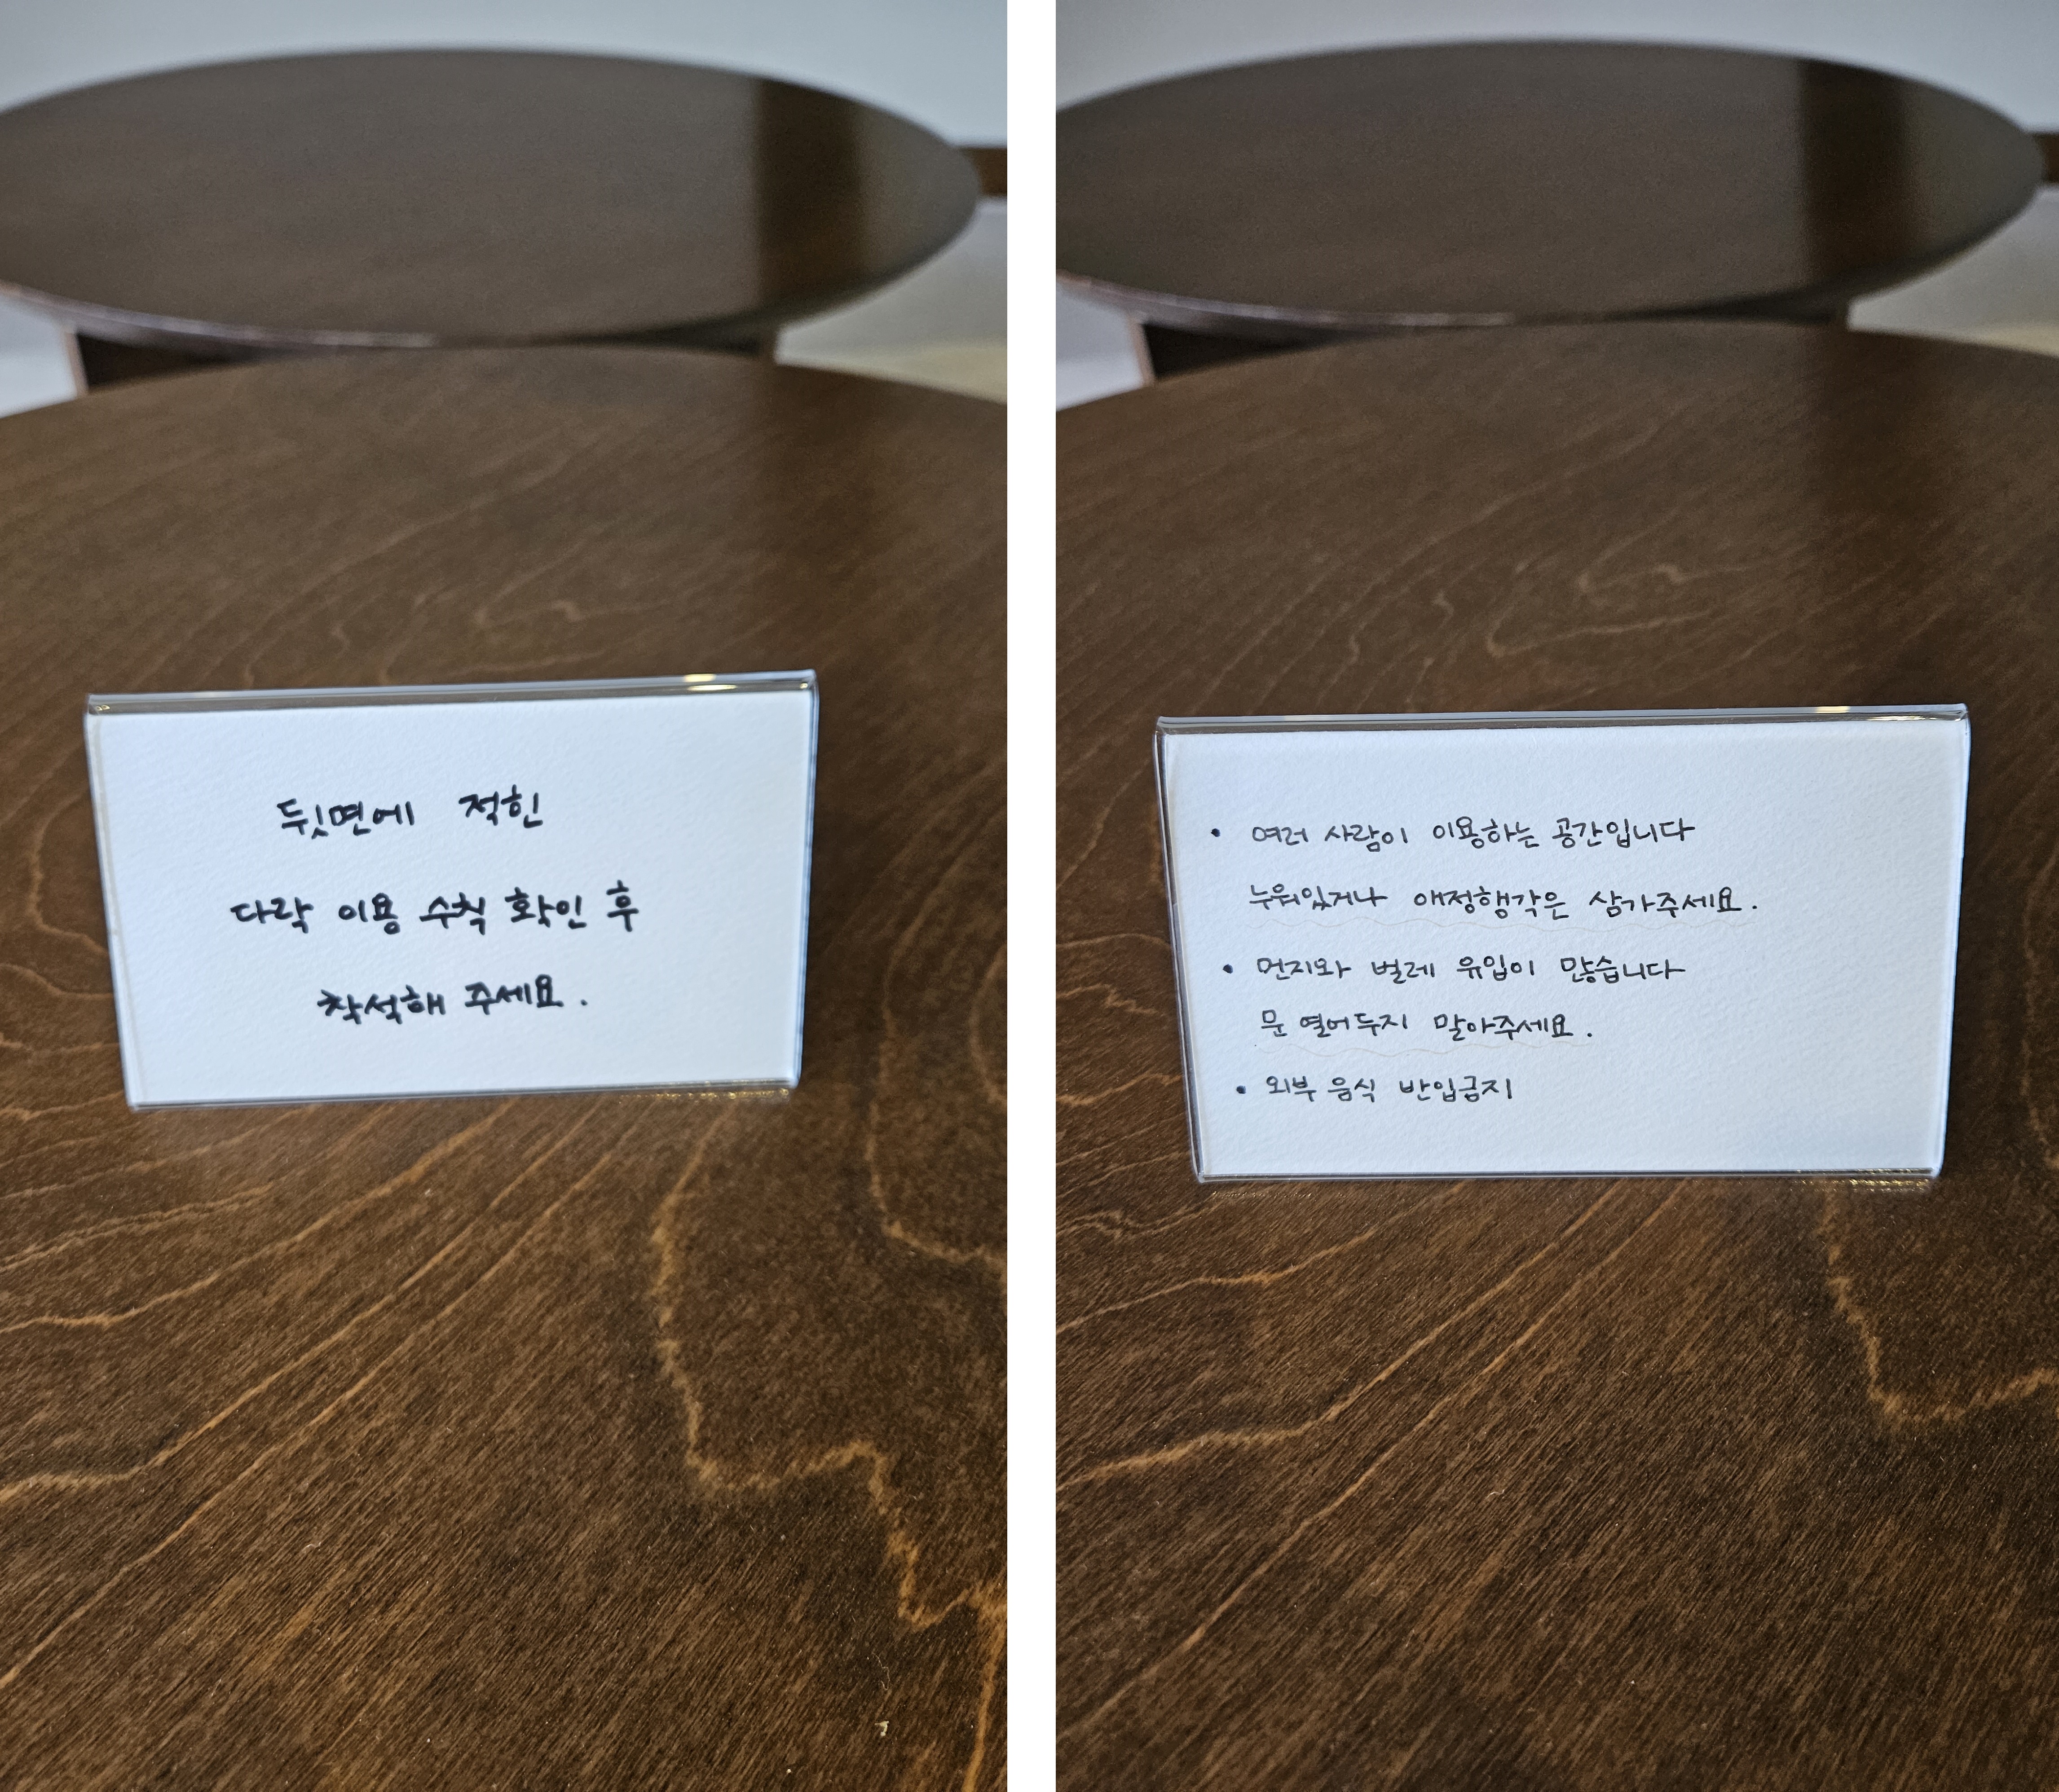 뒷면에 적힌
다락 이용 수칙 확인 후
착석해 주세요.
• 여러 사람이 이용하는 공간입니다
누워있거나 애정행각은 삼가주세요.
• 먼지와 벌레 유입이 많습니다
문 열어두지 말아주세요.
• 외부 음식 반입금지